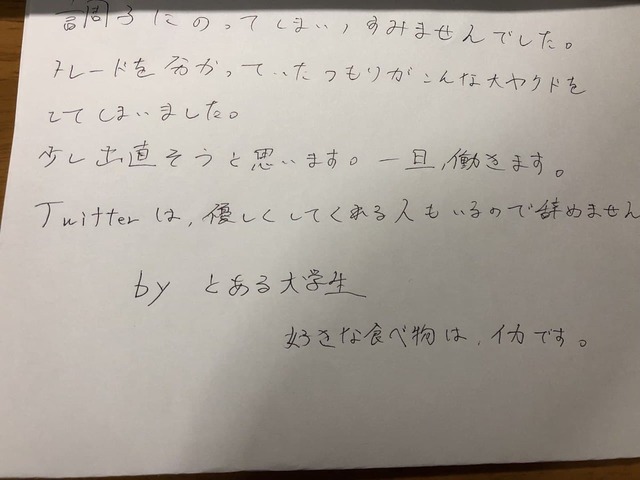 調子にのってしまい、すみませんでした。
トレードを分かっていたつもりがこんな大ヤケドを
してしまいました。
少し出直そうと思います。一旦、働きます。
Twitterは、優しくしてくれる人もいるので辞めません
by とある大学生
好きな食べ物は、イカです。